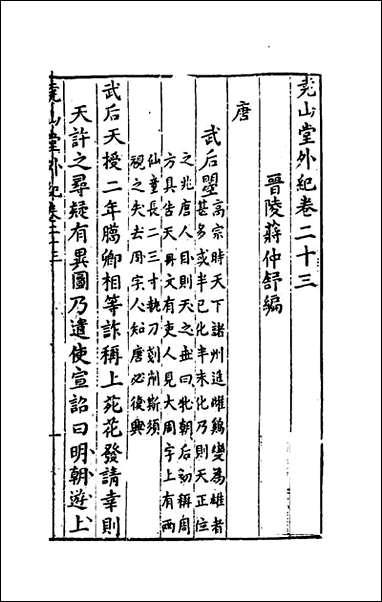 堯山堂外紀卷二十三
晉陵蔣仲舒編
唐
武后曌
高宗時天下諸州進雌鷄變爲雄者
甚多或半已化半未化乃則天正位
之兆唐人目則天之世曰牝朝后初稱周
方具告天冊文有吏人見大周字上有兩
仙童長二三寸執刀剗削斯須
視之失去周字人知唐必復興
武后天授二年臈卿相等詐稱上苑花發請幸則
天許之尋疑有異圖乃遣使宣詔曰明朝遊上
堯山堂外紀卷二十三
一